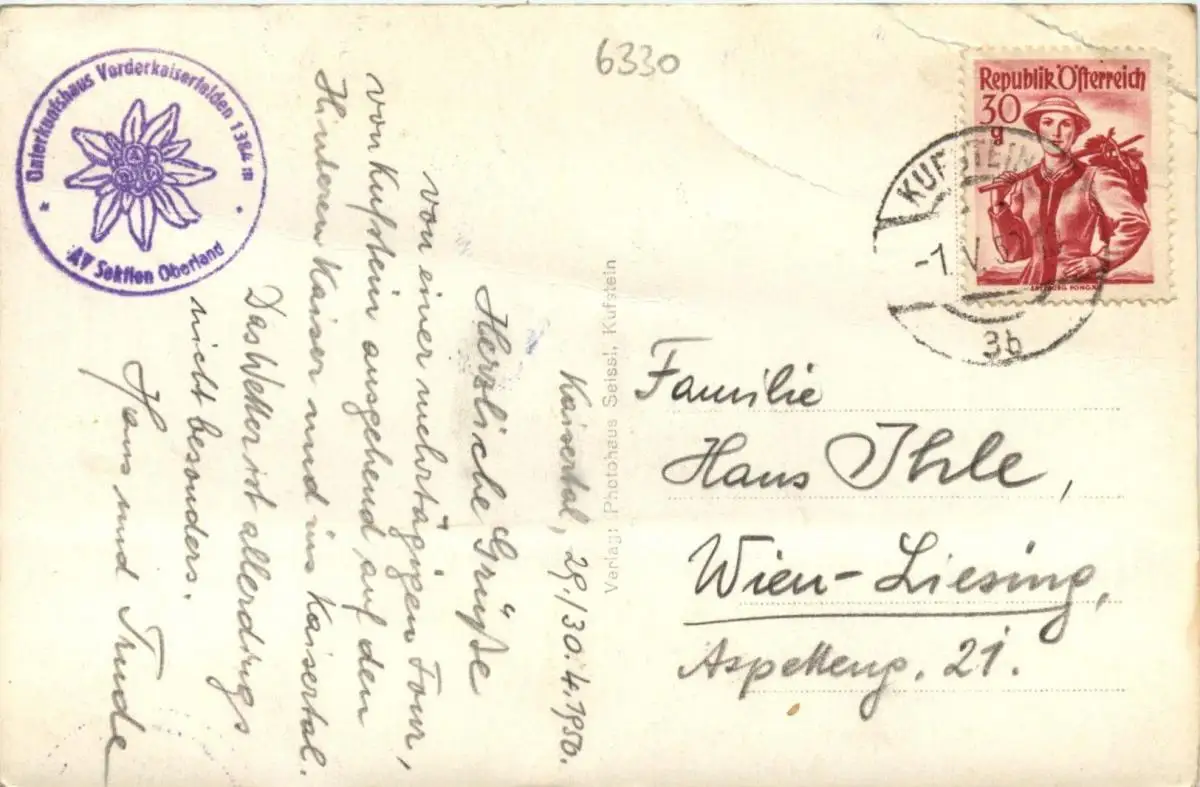 6330
Unterkunftshaus Vorderkaiserfelden 1384 m
AV Sektion Oberland
Republik Österreich
30
g
KUFSTEIN
-1. V. 50
3b
Kaisertal, 29./30.4.1950.
Herzliche Grüße
von einer mehrtägigen Tour,
von Kufstein ausgehend auf den
Hinteren Kaiser und ins Kaisertal.
Das Wetter ist allerdings
nicht besonders.
Hans und Trude
Verlag: Photohaus Seissl, Kufstein
Familie
Hans Ihle,
Wien-Liesing,
21.